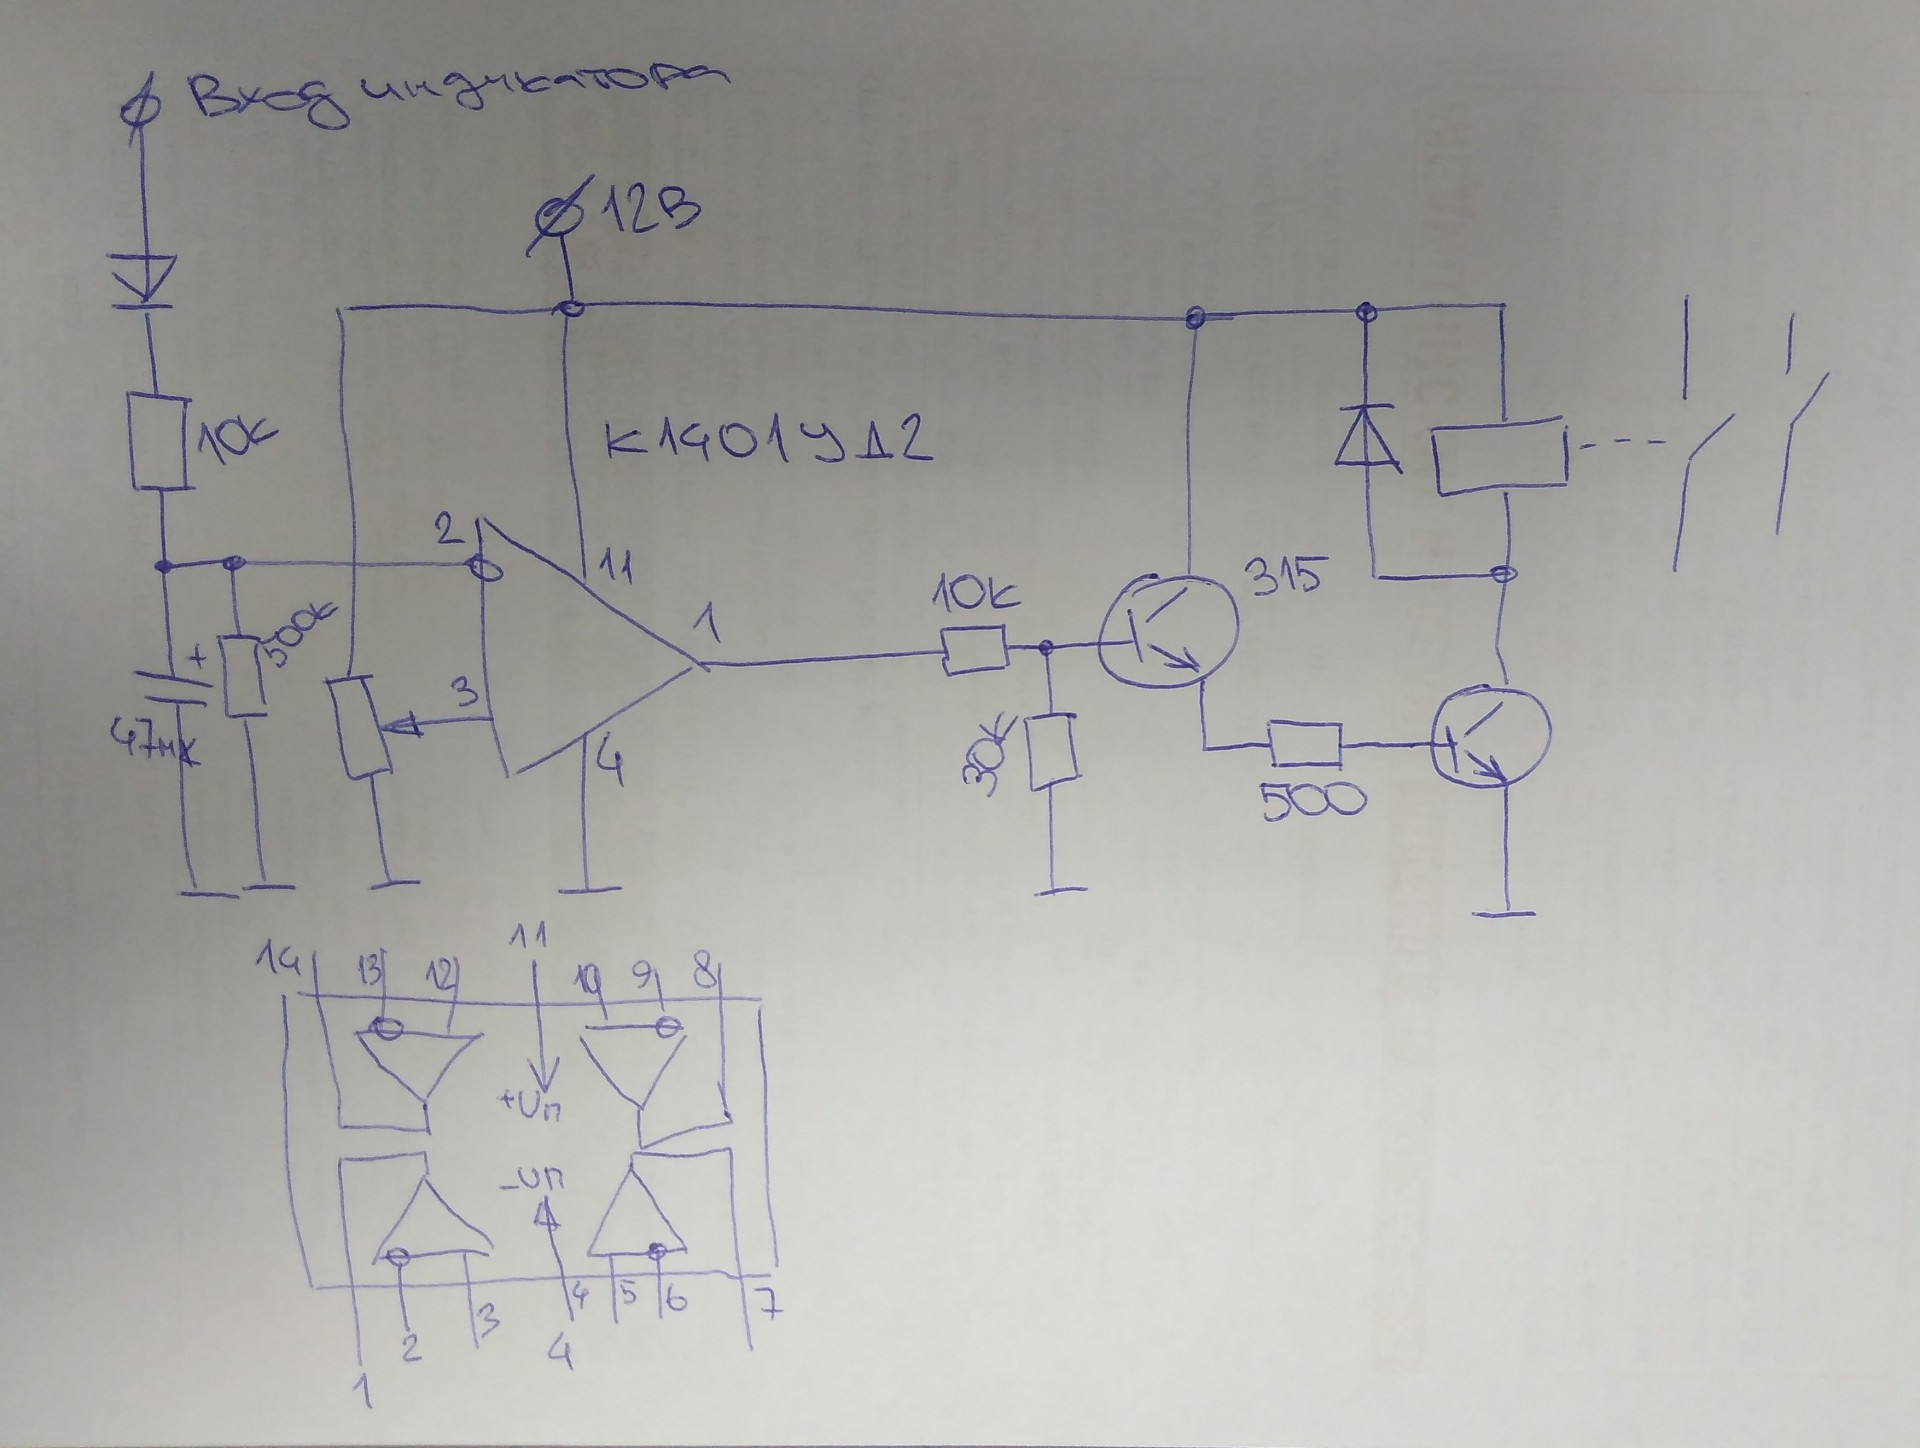 Вход индикатора
12В
10к
К1401УД2
2
11
1
10к
315
500к
+
3
47мк
4
30к
500
11
14 13 12 10 9 8
+Uп
-Uп
4 5 6 7
3
2 4
1